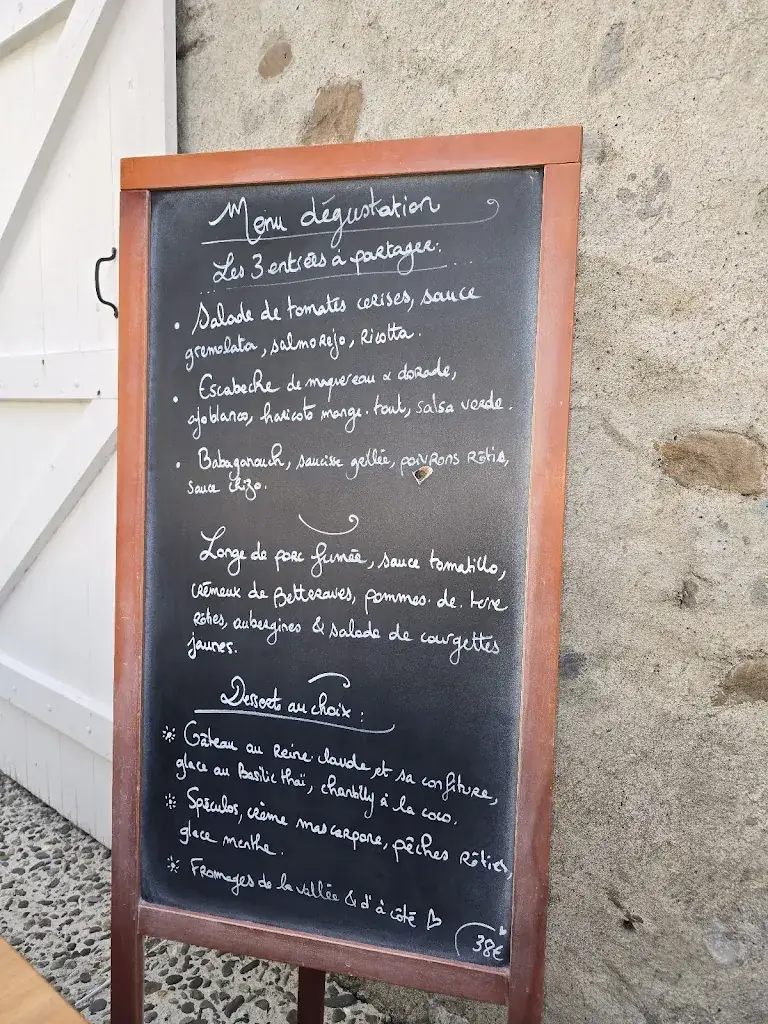 Menu dégustation
Les 3 entrées à partager:
• Salade de tomates cerises, sauce
gremolata, salmorejo, Ricotta.
• Escabeche de maquereau & dorade,
ajoblanco, haricots mange-tout, salsa verde.
• Babaganouch, saucisse grillée, poivrons Rôtis,
sauce chizo.
Longe de porc fumée, sauce tomatillo,
crémeux de Betteraves, pommes-de-terre
rôties, aubergines & salade de courgettes
jaunes.
Dessert au choix :
Gâteau au Reine-claude et sa confiture,
glace au Basilic thaï, chantilly à la coco.
Spéculos, crème mascarpone, pêches Rôties,
glace menthe.
Fromages de la vallée & d'à côté
38€